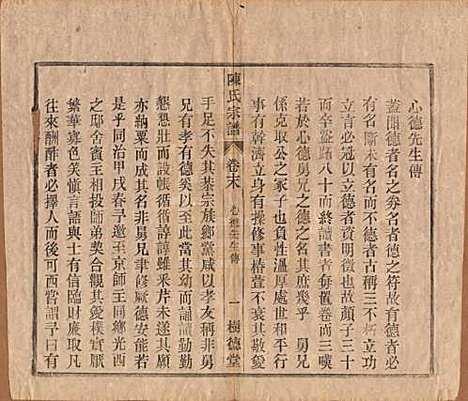 心德先生傳
蓋聞德者名之券名者德之符故有德者
有名斷未有名而不德者古稱三不朽立功
立言必冠以立德者資明徵也故顏子三十
而卒跖八十而終讀書者每置卷而三嘆
若於心德舅兄之德之名其庶乎　舅兄
係克取公之冢子也負性溫厚處世和平行
事有幹濟立身有操修事椿萱不衰其敬愛
陳氏宗譜
卷末
心德先生傳
一
樹德堂
手足不失其恭宗族鄉黨咸以孝友稱非舅
兄有孝有德矣以至 先祖有功而誦讀勤勤
懇懇壯而設帳循循善誘雖采芹未遂其志
亦納粟而成其名非舅兄聿修厥德安能若
是乎同治甲戌春予邀至京師王同鄉光西
之邸舍賓王相投師弟契合觀其愛樸實而
繁華寡色笑慎言語與士有信臨財廉取凡
往來酬酢者必擇人而與可西嘗謂予曰有